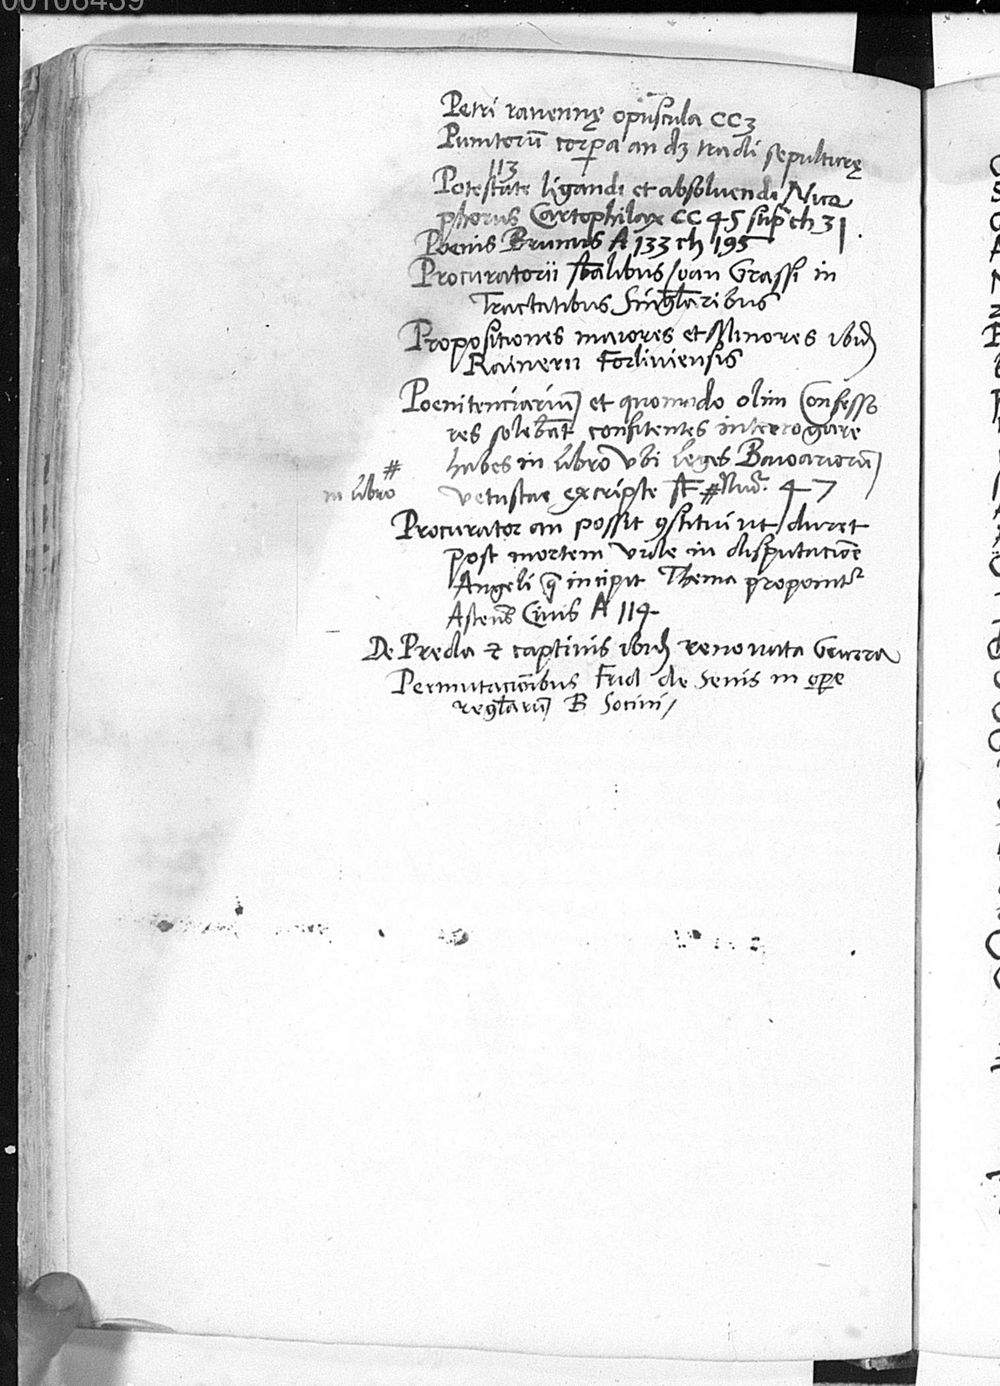 00106439
Petri rauennę opuscula CC3
Punitorū corpa an dʒ tradi sepulturę
113
Potestate ligandi et absoluendi Nice
phorus Cartophilax CC 45 sup ch 31.
Poenis Brunus A 133 ch 195
Procuratorii sbalibus Joan Grassi in
Tractatibus Singlaribus
Propositiones maiores et Minores ibid
Rainerii Forliuiensis
Poenitenciariū et quomodo olim Confesso
res solebāt confitentes interrogare
habes in libro vbi leges Bauoariorū
# in libro vetustae excripte st # Nuō. 47
Procurator an possit ꝯstitui ut duret
post mortem vide in disputacioē
Angeli q̄ incipit Thema proponitʳ
Astens Ciuis A 114
De Preda & captiuis ibid renouata Guerra
Permutacioībus Frid de Senis in ope
reglarū B Socini